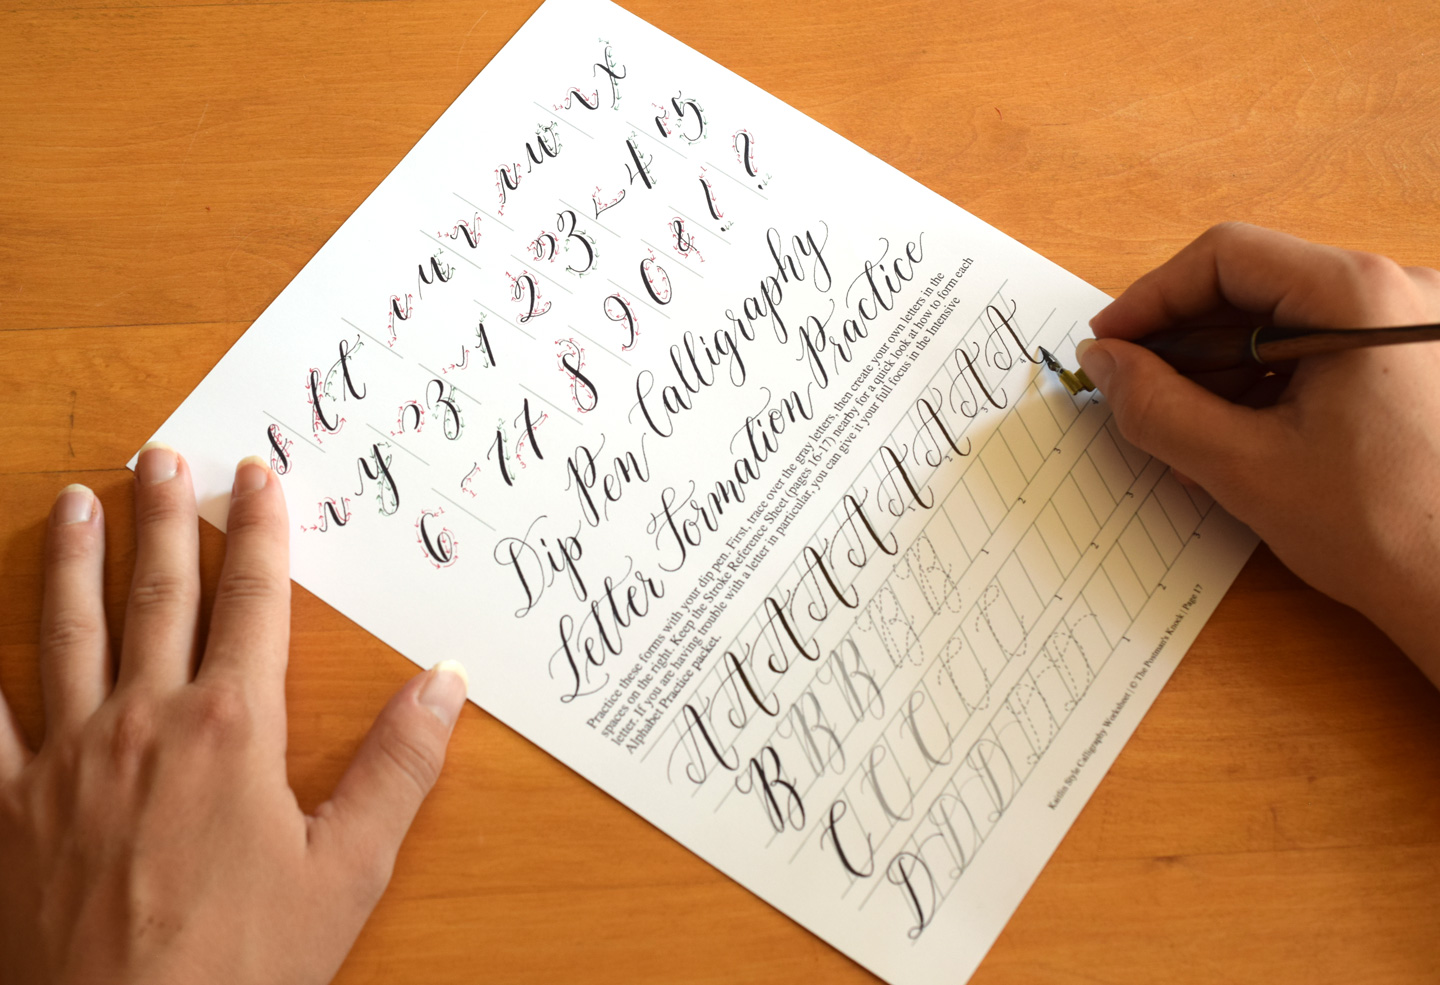 s t t u v w x
y z 1 2 3 4 5
6 7 8 9 0 & ! ?
Dip Pen Calligraphy
Letter Formation Practice
Practice these forms with your dip pen. First, trace over the gray letters, then create your own letters in the
spaces on the right. Keep the Stroke Reference Sheet (pages 16-17) nearby for a quick look at how to form each
letter. If you are having trouble with a letter in particular, you can give it your full focus in the Intensive
Alphabet Practice packet.
A A A A A A A A A
B B B B B 1 2 3 4
C C C C C 1 2 3
D D D D D 1 2 3
Kaitlin Style Calligraphy Worksheet | © The Postman's Knock | Page 17